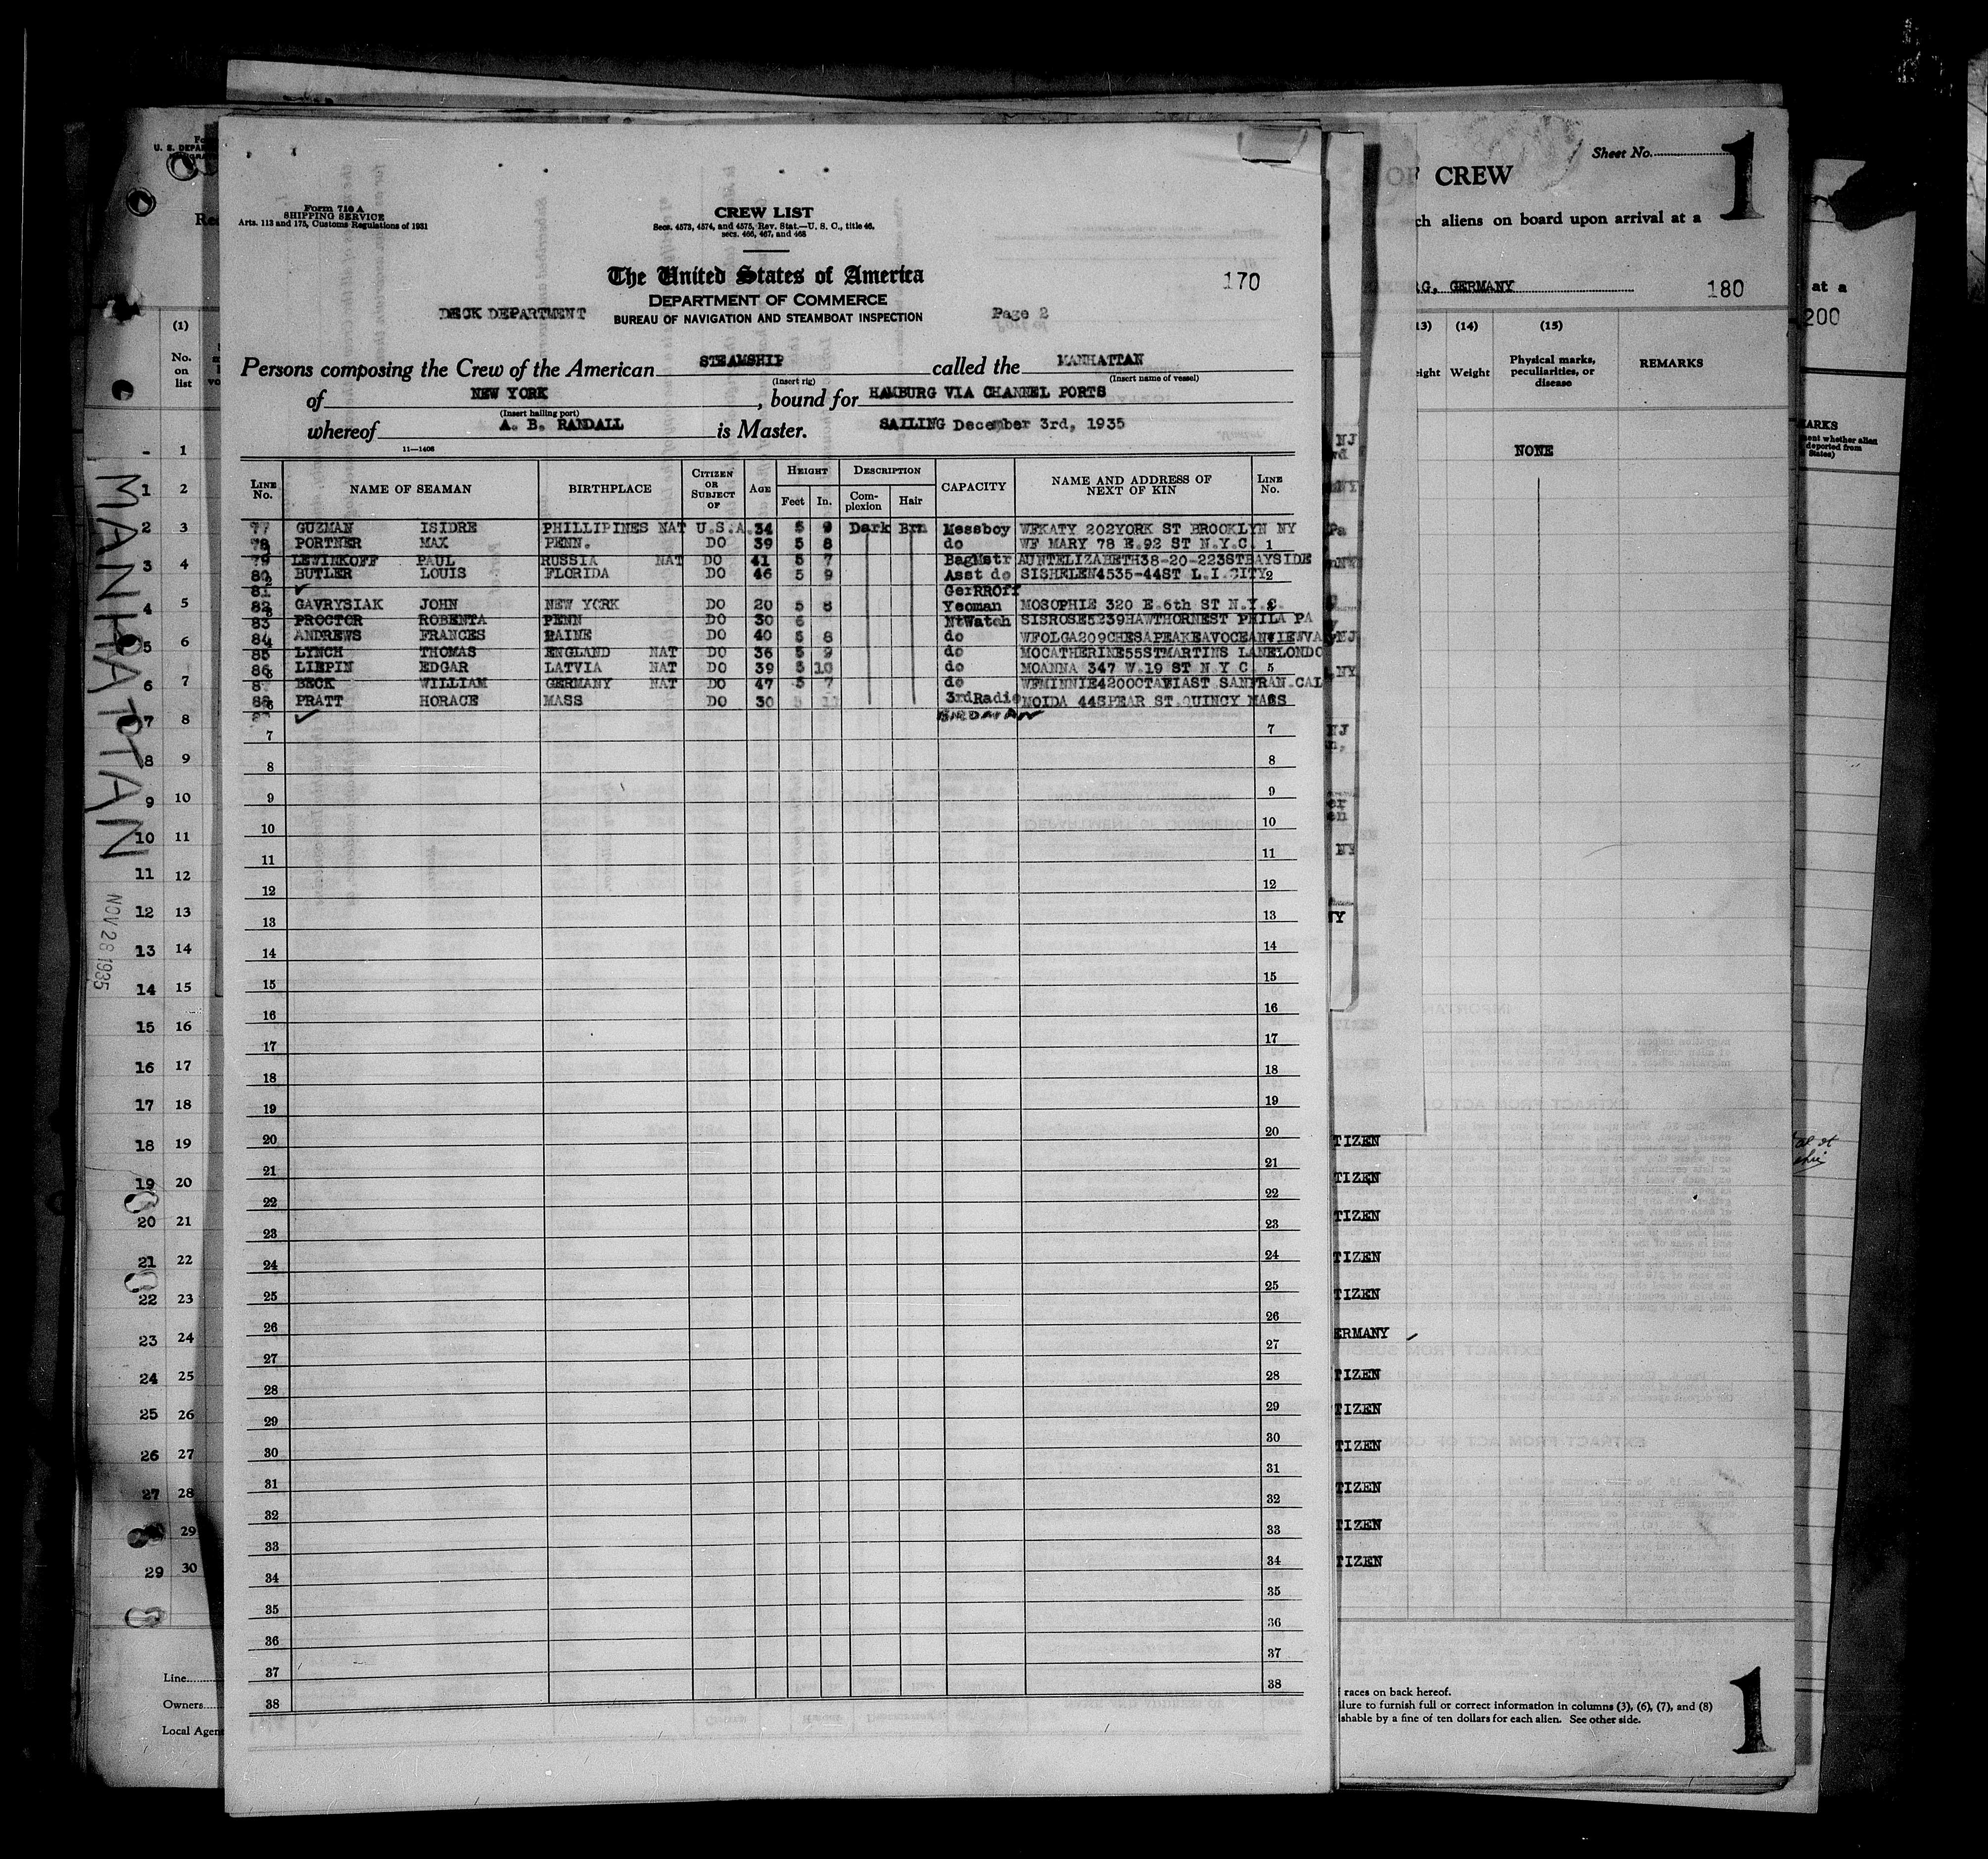 Form 710 A
SHIPPING SERVICE
Arts. 113 and 175, Customs Regulations of 1931
CREW LIST
Secs. 4573, 4574, and 4575, Rev. Stat.—U. S. C., title 46,
secs. 466, 467, and 468
The United States of America
170
DEPARTMENT OF COMMERCE
DECK DEPARTMENT
BUREAU OF NAVIGATION AND STEAMBOAT INSPECTION
Page 2
Persons composing the Crew of the American STEAMSHIP called the MANHATTAN
(Insert rig) (Insert name of vessel)
of NEW YORK, bound for HAMBURG VIA CHANNEL PORTS
(Insert hailing port)
whereof A. B. RANDALL is Master. SAILING December 3rd, 1935
11—1408
LINE No. NAME OF SEAMAN BIRTHPLACE CITIZEN OR SUBJECT OF AGE HEIGHT Feet In. DESCRIPTION Complexion Hair CAPACITY NAME AND ADDRESS OF NEXT OF KIN LINE No.
77 GUZMAN ISIDRE PHILLIPINES NAT U.S.A. 34 5 9 Dark Brn Messboy WFKATY 202YORK ST BROOKLYN NY
78 PORTNER MAX PENN. DO 39 5 8 do WF MARY 78 E.92 ST N.Y.C. 1
79 LEWINKOFF PAUL RUSSIA NAT DO 41 5 7 BagMstr AUNTELIZABETH38-20-223STBAYSIDE
80 BUTLER LOUIS FLORIDA DO 46 5 9 Asst do SISHELEN4535-44ST L.I.CITY 2
81 ✓ GeiRROff
82 GAVRYSIAK JOHN NEW YORK DO 20 5 8 Yeoman MOSOPHIE 320 E.6th ST N.Y.C.
83 PROCTOR ROBENTA PENN DO 30 6 NtWatch SISROSE5239HAWTHORNEST PHILA PA
84 ANDREWS FRANCES RAINE DO 40 5 8 do WFOLGA209CHESAPEAKEAVOCEANVIEWVA
85 LYNCH THOMAS ENGLAND NAT DO 36 5 9 do MOCATHERINE55STMARTINS LANELONDO
86 LIEPIN EDGAR LATVIA NAT DO 39 5 10 do MOANNA 347 W.19 ST N Y C 5
8 BECK WILLIAM GERMANY NAT DO 47 5 7 do WFMINNIE4200CTAVIAST SANFRAN.CAL
88 PRATT HORACE MASS DO 30 5 11 3rdRadio MOIDA 44SPEAR ST.QUINCY MASS
✓
7 7
8 8
9 9
10 10
11 11
12 12
13 13
14 14
15 15
16 16
17 17
18 18
19 19
20 20
21 21
22 22
23 23
24 24
25 25
26 26
27 27
28 28
29 29
30 30
31 31
32 32
33 33
34 34
35 35
36 36
37 37
38 38
MANHATTAN
NOV 28 1935
(1)
No.
on
list
1
1 2
2 3
3 4
4 5
5 6
6 7
7 8
8 9
9 10
10 11
11 12
12 13
13 14
14 15
15 16
16 17
17 18
18 19
19 20
20 21
21 22
22 23
23 24
24 25
25 26
26 27
27 28
29
29 30
Line
Owners
Local Agen
Sheet No.
1
OF CREW
ch aliens on board upon arrival at a
RG, GERMANY
180
13) (14) (15)
eight Weight Physical marks, peculiarities, or disease REMARKS
NONE
TIZEN
TIZEN
TIZEN
TIZEN
TIZEN
ERMANY
TIZEN
TIZEN
TIZEN
TIZEN
TIZEN
TIZEN
races on back hereof.
ilure to furnish full or correct information in columns (3), (6), (7), and (8)
ishable by a fine of ten dollars for each alien. See other side.
1
at a
200